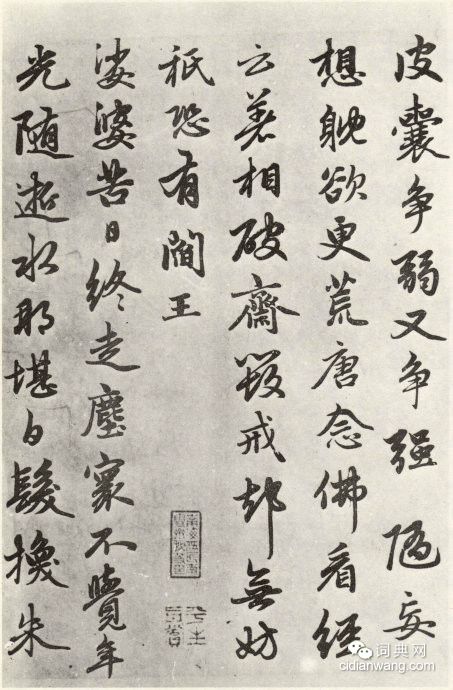 皮囊争弱又争强随妄
想躭欲更荒唐念佛看經
云著相破齋毀戒却無妨
祇恐有閻王
娑婆苦日終走塵寰不覺年
光随逝水那堪白髮換朱
词典网
cidianwang.com